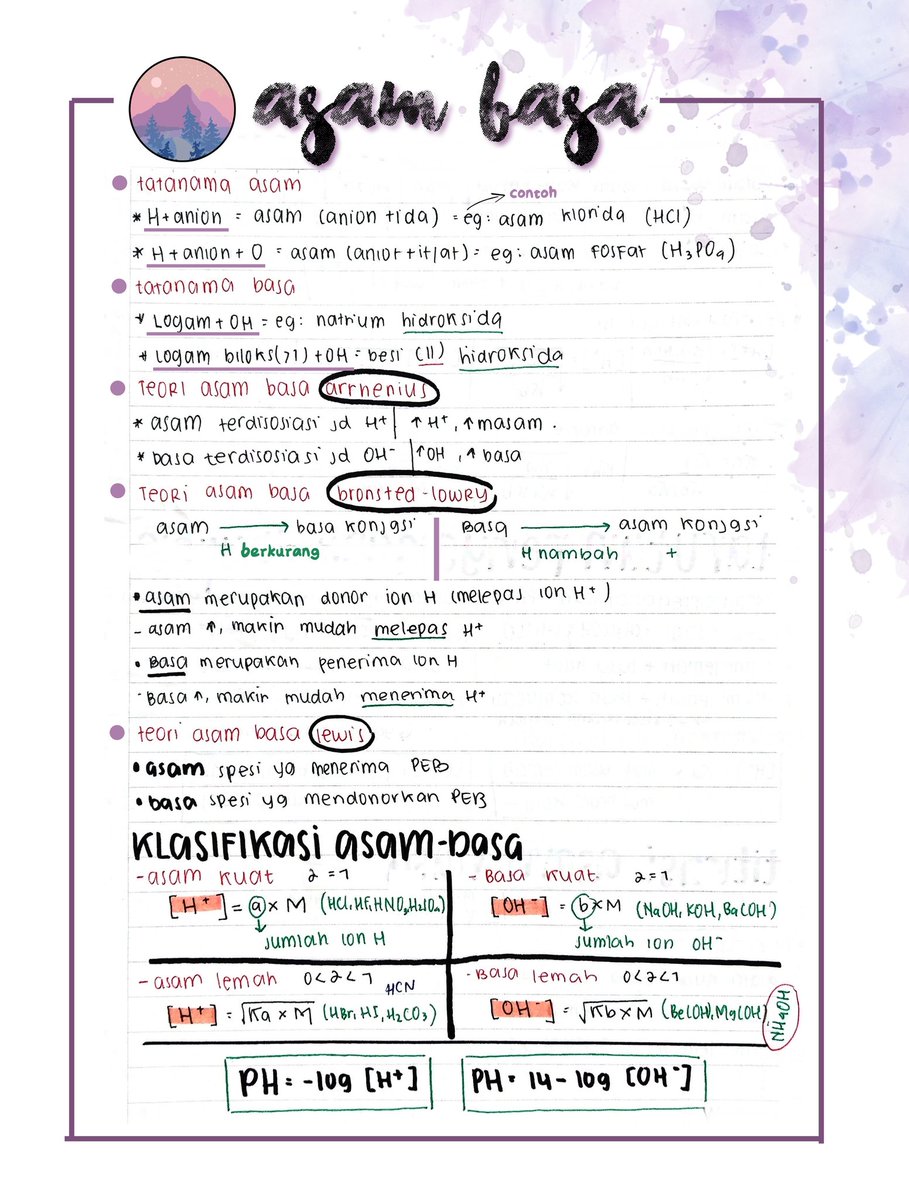 asam basa
tatanama asam
contoh
* H+anion = asam (anion + ida) = eg: asam klorida (HCl)
* H+anion+O = asam (anion+it/at) = eg: asam fosfat (H₃PO₄)
tatanama basa
* Logam+OH = eg: natrium hidroksida
* Logam biloks(>1)+OH = besi (II) hidroksida
Teori asam basa arrhenius
* asam terdisosiasi jd H⁺ | ↑ H⁺, ↑ masam.
* basa terdisosiasi jd OH⁻ | ↑ OH, ↑ basa
Teori asam basa bronsted-lowry
asam → basa konjgsi
H berkurang
Basa → asam konjgsi
H nambah +
• asam merupakan donor ion H (melepas ion H⁺)
- asam ↑, makin mudah melepas H⁺
• Basa merupakan penerima ion H
- Basa ↑, makin mudah menerima H⁺
teori asam basa lewis
• asam spesi yg menerima PEB
• basa spesi yg mendonorkan PEB
KLasifikasi asam-basa
- asam kuat 2 = 1
[H⁺] = a × M (HCl, HF, HNO₃, H₂SO₄)
jumlah ion H
- Basa kuat. 2 = 1.
[OH⁻] = b × M (NaOH, KOH, BaCOH)
jumlah ion OH⁻
- asam lemah 0<2<1
HCN
[H⁺] = √Ka × M (HBr, HS, H₂CO₃)
- Basa lemah 0<2<1
[OH⁻] = √Kb × M (Be(OH), Mg(OH)
NH₄OH
PH = -log [H⁺]
PH = 14 - log [OH⁻]